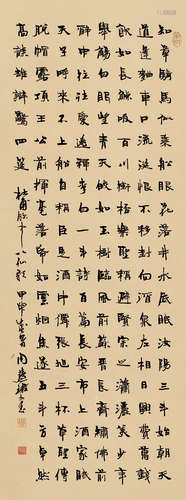 知章騎馬似乘船眼花落井水底眠汝陽三斗始朝天
道逢麴車口流涎恨不移封向酒泉左相日興費萬錢
飲如長鯨吸百川銜杯樂聖稱避賢宗之瀟灑美少年
舉觴白眼望青天皎如玉樹臨風前蘇晉長齋繡佛前
醉中往往愛逃禪李白一斗詩百篇長安市上酒家眠
天子呼來不上船自稱臣是酒中仙張旭三杯草聖傳
脫帽露頂王公前揮毫落紙如雲煙焦遂五斗方卓然
高談雄辯驚四筵 杜甫飲中八仙歌 甲申